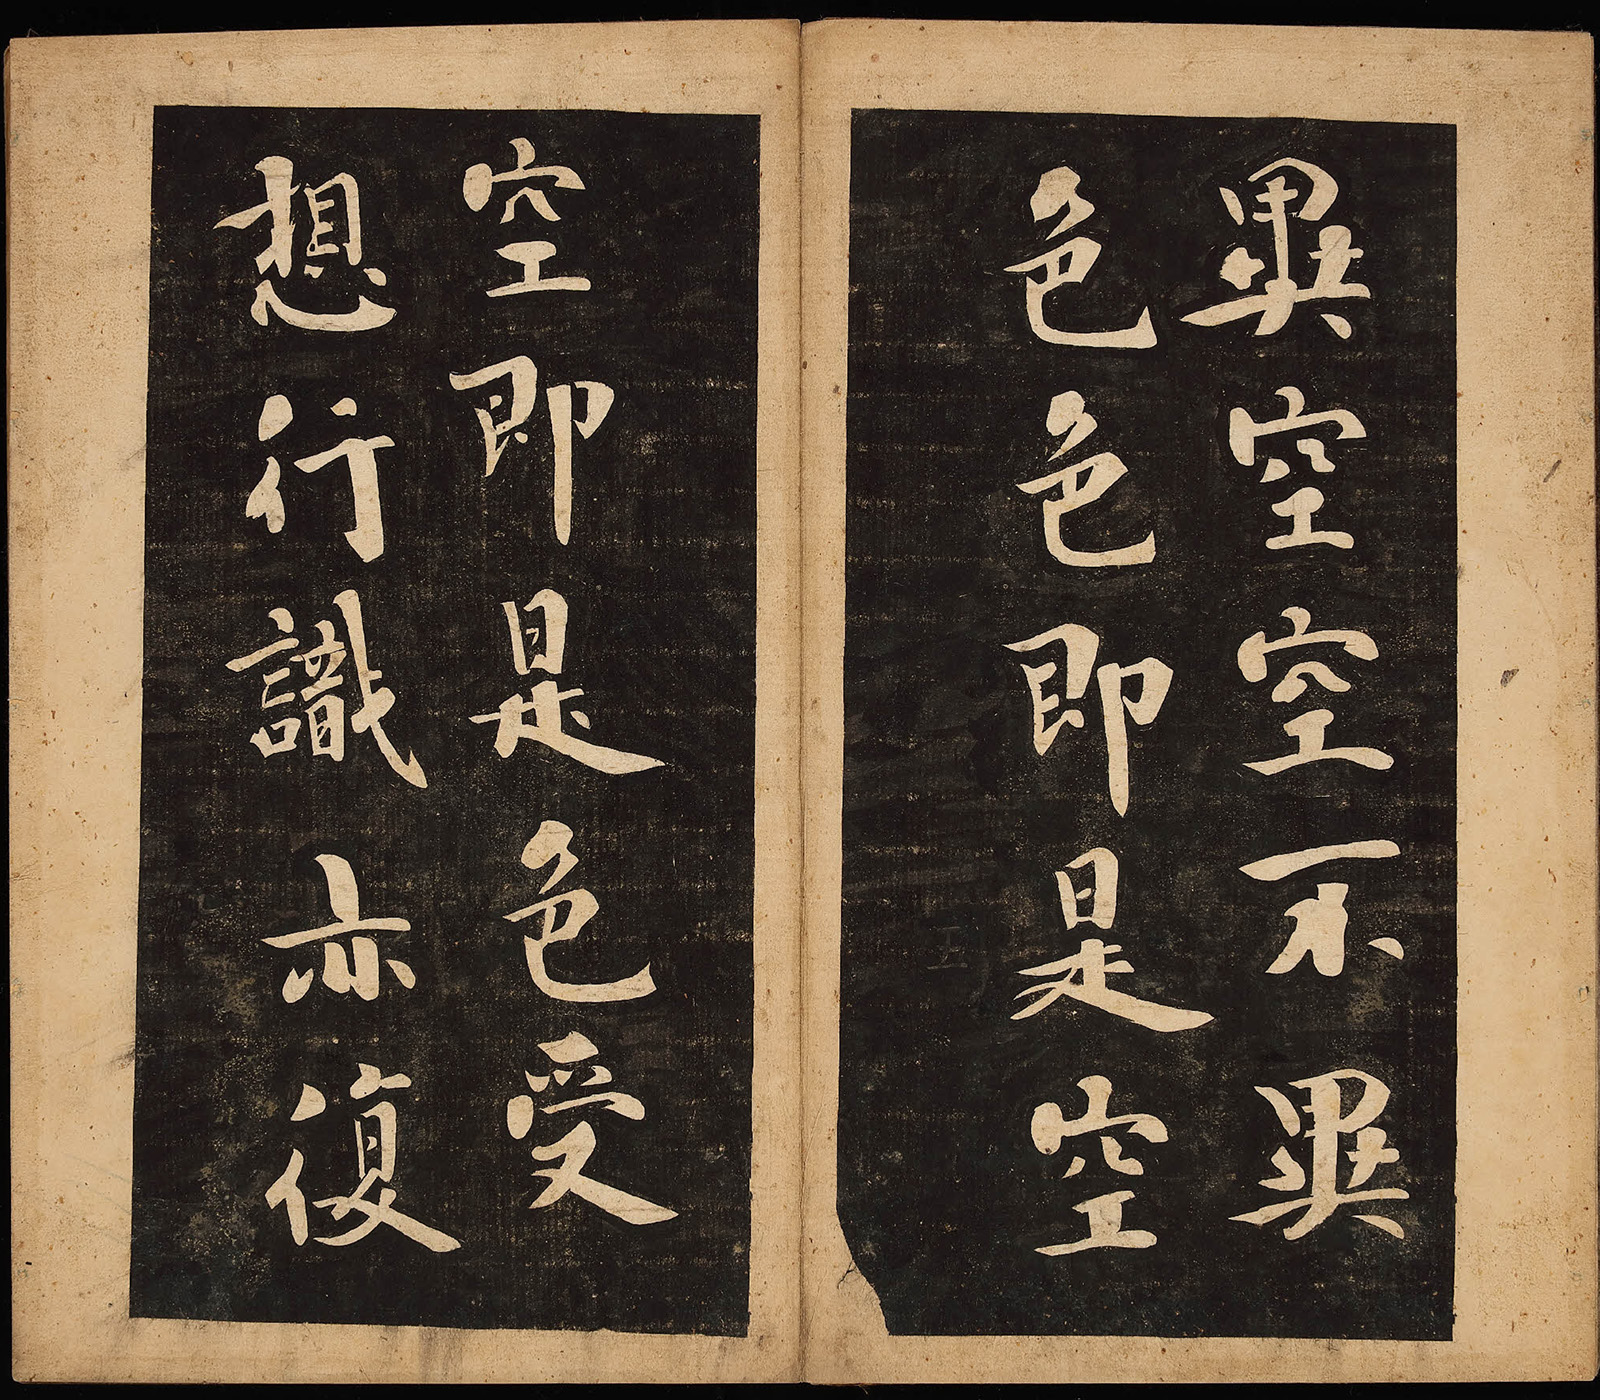 異空空不異
色色即是空
空即是色受
想行識亦復